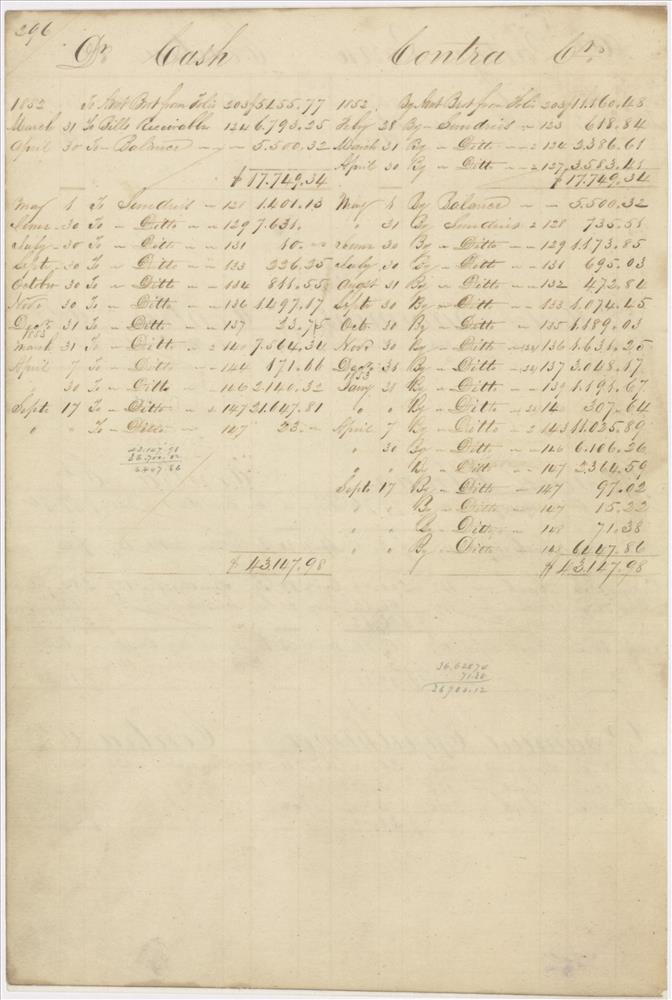 296
Dr. Cash Contra Cr.
1852 To Amt Brot from Folio 203 $5455.77 1852 By Amt Brot from Folio 203 $11.160.48
March 31 To Bills Receivable 124 6.793.25 Feby 28 By Sundries 123 618.84
April 30 To Balance 5.500.32 March 31 By Ditto 124 2.386.61
April 30 By Ditto 127 3.583.41
$17.749.34 $17.749.34
May 1 To Sundries 128 1.401.13 May 1 By Balance 5.500.32
June 30 To Ditto 129 7.631. " 31 By Sundries 128 735.51
July 30 To Ditto 131 10. June 30 By Ditto 129 1.173.85
Septr 30 To Ditto 133 226.25 July 30 By Ditto 131 695.03
October 30 To Ditto 134 811.55 Augst 31 By Ditto 132 472.84
Novr 30 To Ditto 136 1.497.17 Sept 30 By Ditto 133 1.074.45
Decr 31 To Ditto 137 23.75 Oct. 30 By Ditto 135 1.189.03
1853
March 31 To Ditto 140 7.564.34 Novr 30 By Ditto 136 1.631.25
April 7 To Ditto 144 171.66 Decr 31 By Ditto 137 3.048.17
1853
" 30 To Ditto 146 2.140.32 Jany 31 By Ditto 139 1.191.67
Septr 17 To Ditto 147 21.647.81 " " By Ditto 307.64
" " To Ditto 147 23. April 7 By Ditto 143 11.025.89
43.147.98 " 30 By Ditto 146 6.106.26
36.700.12
6447.86 " " By Ditto 147 2.364.59
Septr 17 By Ditto 147 97.02
" " By Ditto 147 15.22
" " By Ditto 148 71.38
" " By Ditto 148 6447.86
$43.147.98 $43.147.98
36.62874
71.38
36700.12